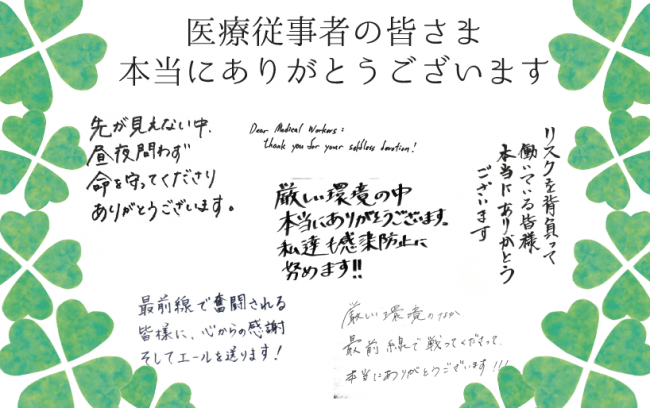 医療従事者の皆さま
本当にありがとうございます
先が見えない中、
昼夜問わず
命を守ってくださり
ありがとうございます。
Dear Medical Workers:
thank you for your selfless devotion!
リスクを背負って
働いている皆様
本当にありがとう
ございます
厳しい環境の中
本当にありがとうございます。
私達も感染防止に
努めます!!
最前線で奮闘される
皆様に、心からの感謝
そしてエールを送ります!
厳しい環境のなか
最前線で戦ってくださって、
本当にありがとうございます!!!